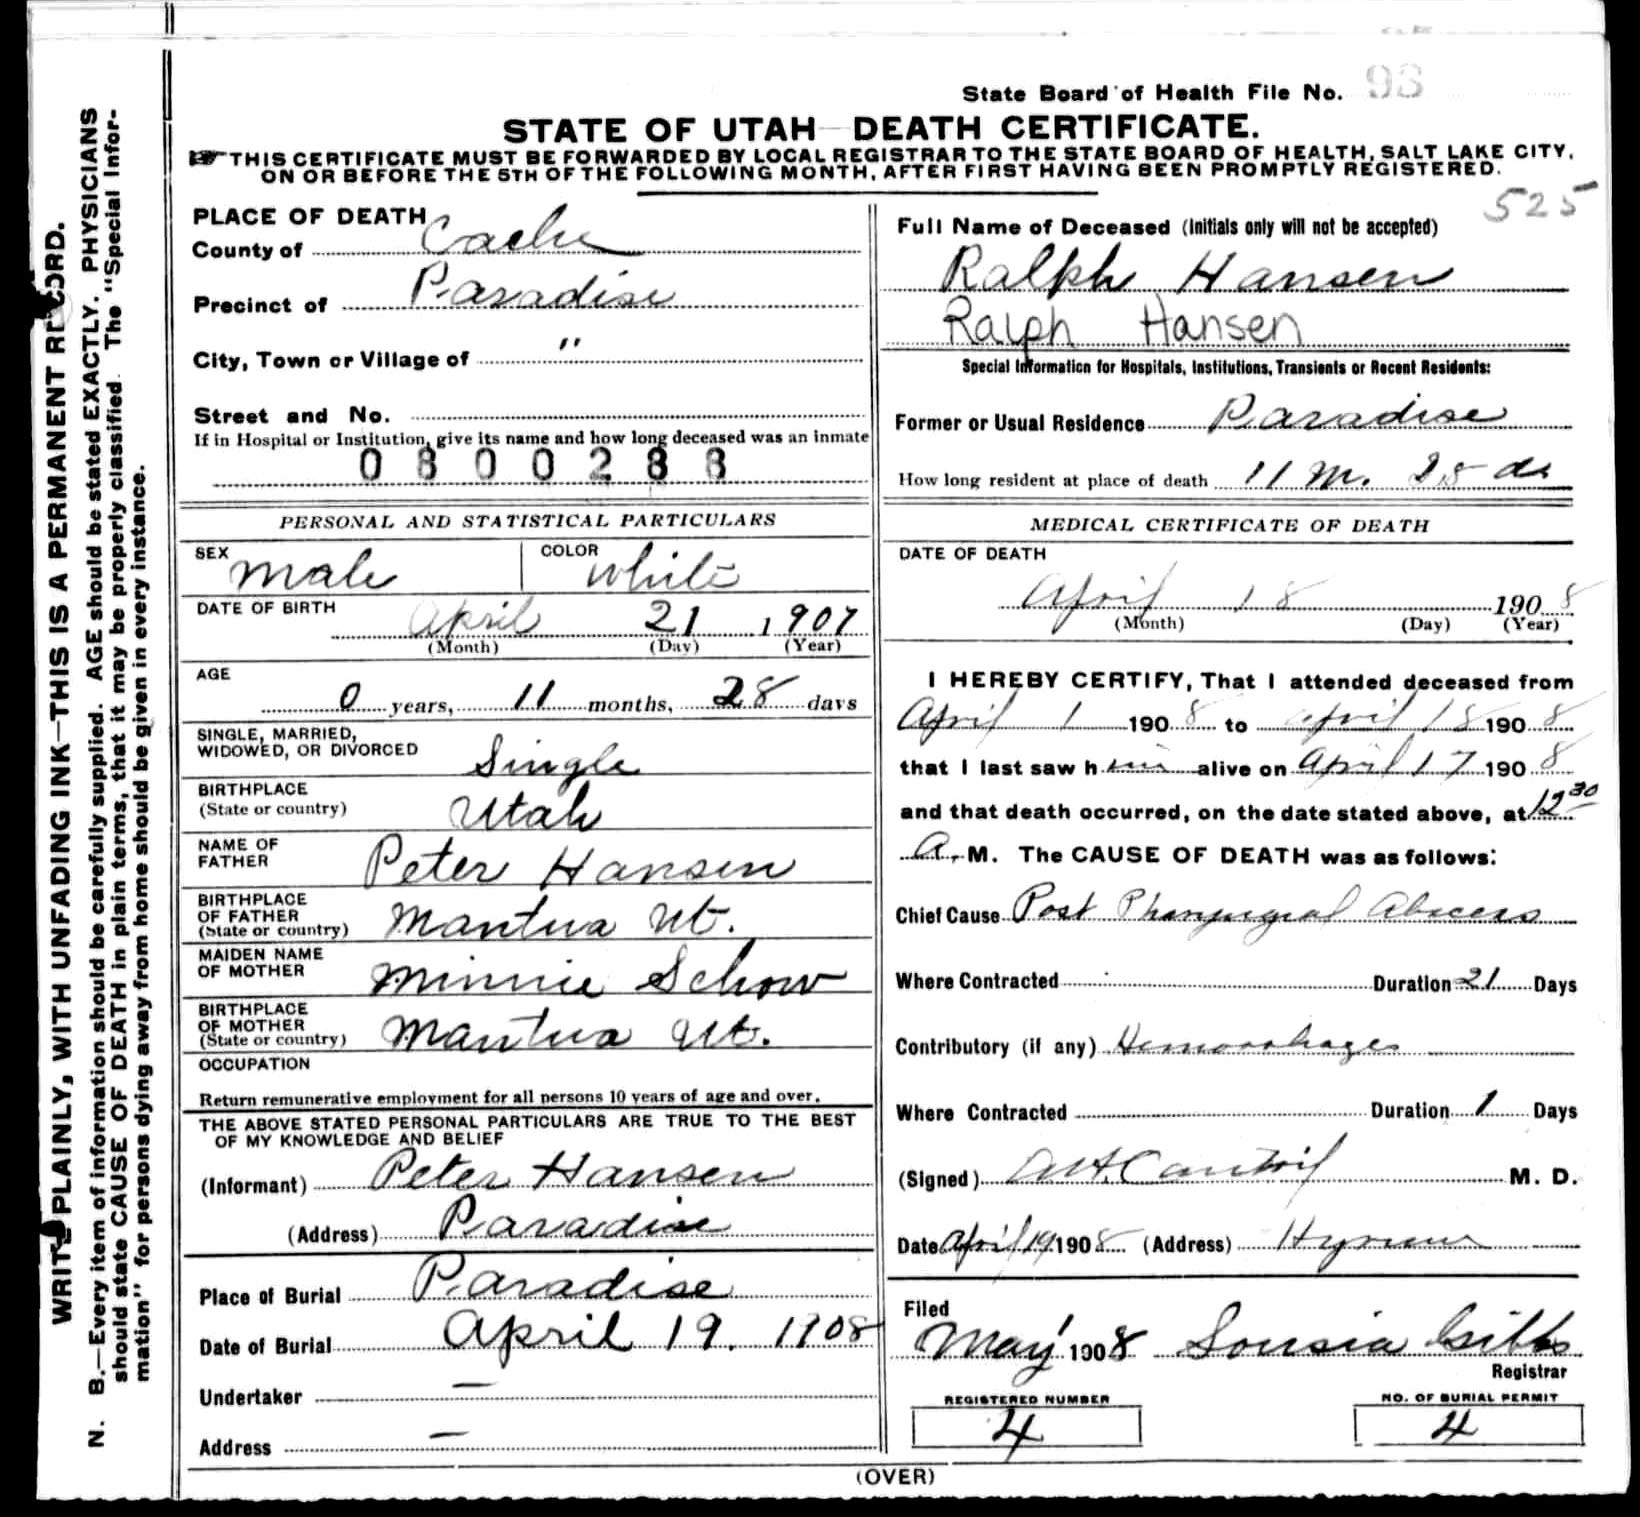 State Board of Health File No. 93
STATE OF UTAH—DEATH CERTIFICATE.
☞ THIS CERTIFICATE MUST BE FORWARDED BY LOCAL REGISTRAR TO THE STATE BOARD OF HEALTH, SALT LAKE CITY,
ON OR BEFORE THE 5TH OF THE FOLLOWING MONTH, AFTER FIRST HAVING BEEN PROMPTLY REGISTERED.
525
WRITE PLAINLY, WITH UNFADING INK—THIS IS A PERMANENT RECORD.
N. B.—Every item of information should be carefully supplied. AGE should be stated EXACTLY. PHYSICIANS
should state CAUSE OF DEATH in plain terms, that it may be properly classified. The "Special Infor-
mation" for persons dying away from home should be given in every instance.
PLACE OF DEATH
County of Cache
Precinct of Paradise
City, Town or Village of "
Street and No.
If in Hospital or Institution, give its name and how long deceased was an inmate
0800288
PERSONAL AND STATISTICAL PARTICULARS
SEX Male COLOR White
DATE OF BIRTH
April 21, 1907
(Month) (Day) (Year)
AGE
0 years, 11 months, 28 days
SINGLE, MARRIED,
WIDOWED, OR DIVORCED Single
BIRTHPLACE
(State or country) Utah
NAME OF
FATHER Peter Hansen
BIRTHPLACE
OF FATHER
(State or country) Mantua Ut.
MAIDEN NAME
OF MOTHER Minnie Schow
BIRTHPLACE
OF MOTHER
(State or country) Mantua Ut.
OCCUPATION
Return remunerative employment for all persons 10 years of age and over.
THE ABOVE STATED PERSONAL PARTICULARS ARE TRUE TO THE BEST
OF MY KNOWLEDGE AND BELIEF
(Informant) Peter Hansen
(Address) Paradise
Place of Burial Paradise
Date of Burial April 19. 1908
Undertaker —
Address —
Full Name of Deceased (Initials only will not be accepted)
Ralph Hansen
Ralph Hansen
Special Information for Hospitals, Institutions, Transients or Recent Residents:
Former or Usual Residence Paradise
How long resident at place of death 11 m. 28 ds
MEDICAL CERTIFICATE OF DEATH
DATE OF DEATH
April 18 1908
(Month) (Day) (Year)
I HEREBY CERTIFY, That I attended deceased from
April 1 1908 to April 18 1908
that I last saw him alive on April 17 1908
and that death occurred, on the date stated above, at 12 30
A. M. The CAUSE OF DEATH was as follows:
Chief Cause Post Pharyngeal Abscess
Where Contracted Duration 21 Days
Contributory (if any) Hemorrhages
Where Contracted Duration 1 Days
(Signed) Cantril M. D.
Date April 19 1908 (Address) Hyrum
Filed
May 1 1908 Gibbs
Registrar
REGISTERED NUMBER
4
NO. OF BURIAL PERMIT
4
(OVER)